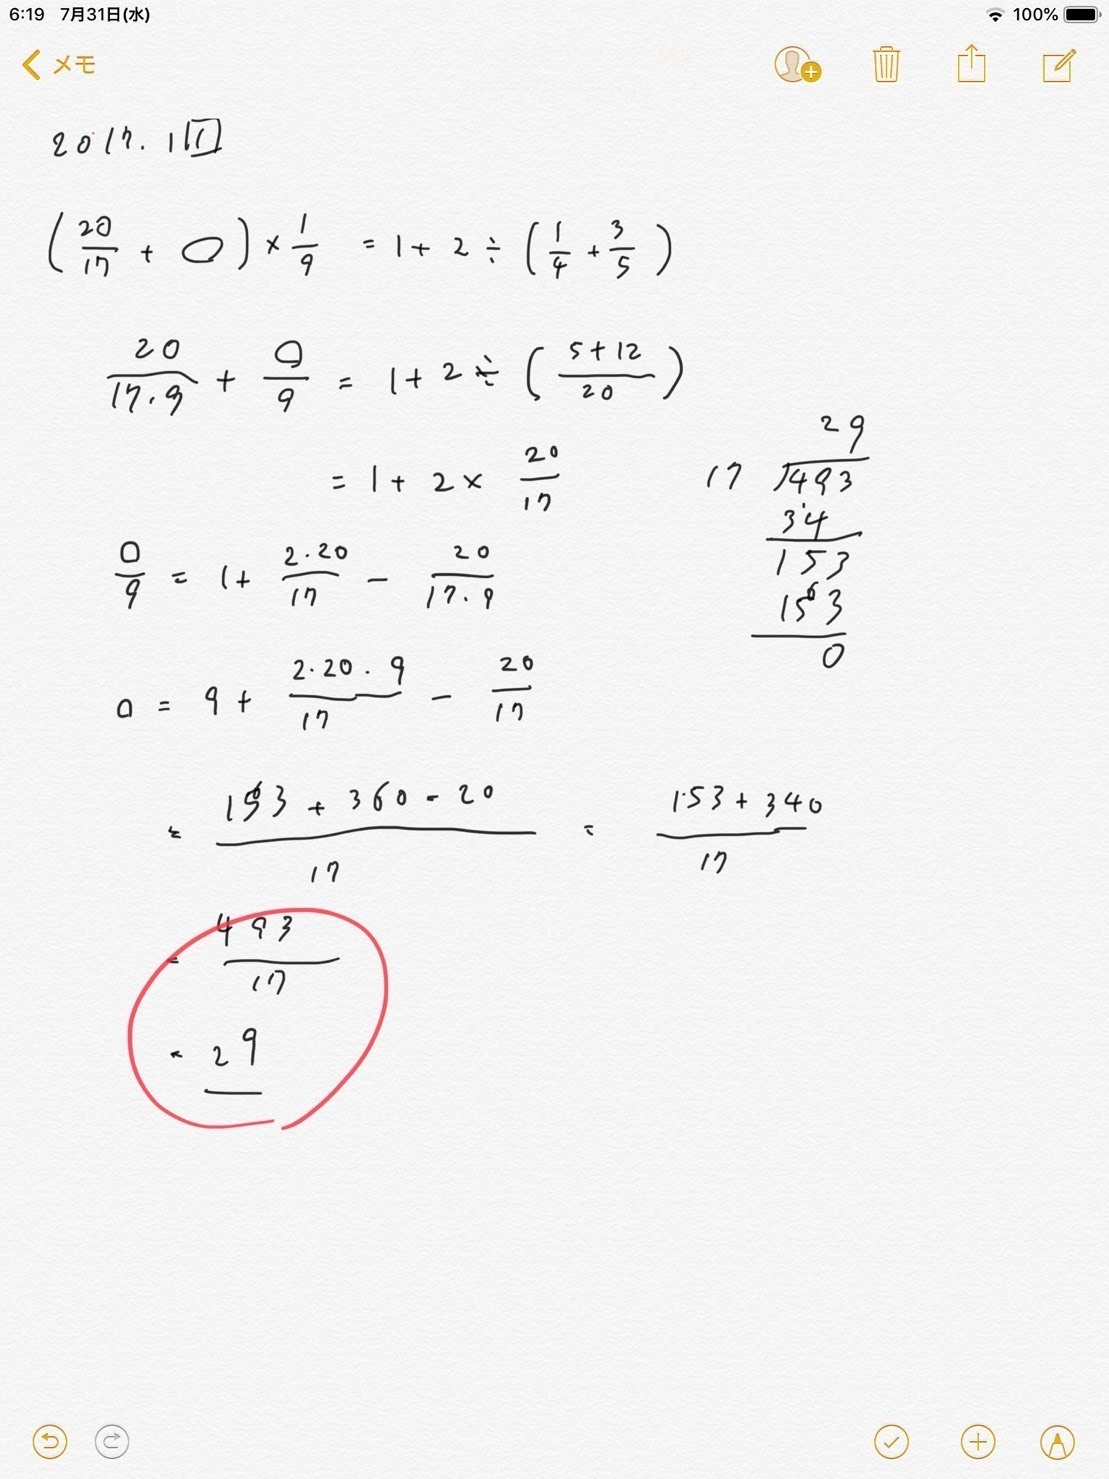 6:19 7月31日(水) 100%
メモ
2017. 1回
(20/17 + ○) × 1/9 = 1 + 2 ÷ (1/4 + 3/5)
20/17.9 + □/9 = 1 + 2 ÷ (5+12/20)
= 1 + 2 × 20/17
□/9 = 1 + 2.20/17 - 20/17.9
□ = 9 + 2.20.9/17 - 20/17
= 153 + 360 - 20/17 = 153 + 340/17
= 493/17
= 29
29
17 )493
34
153
153
0